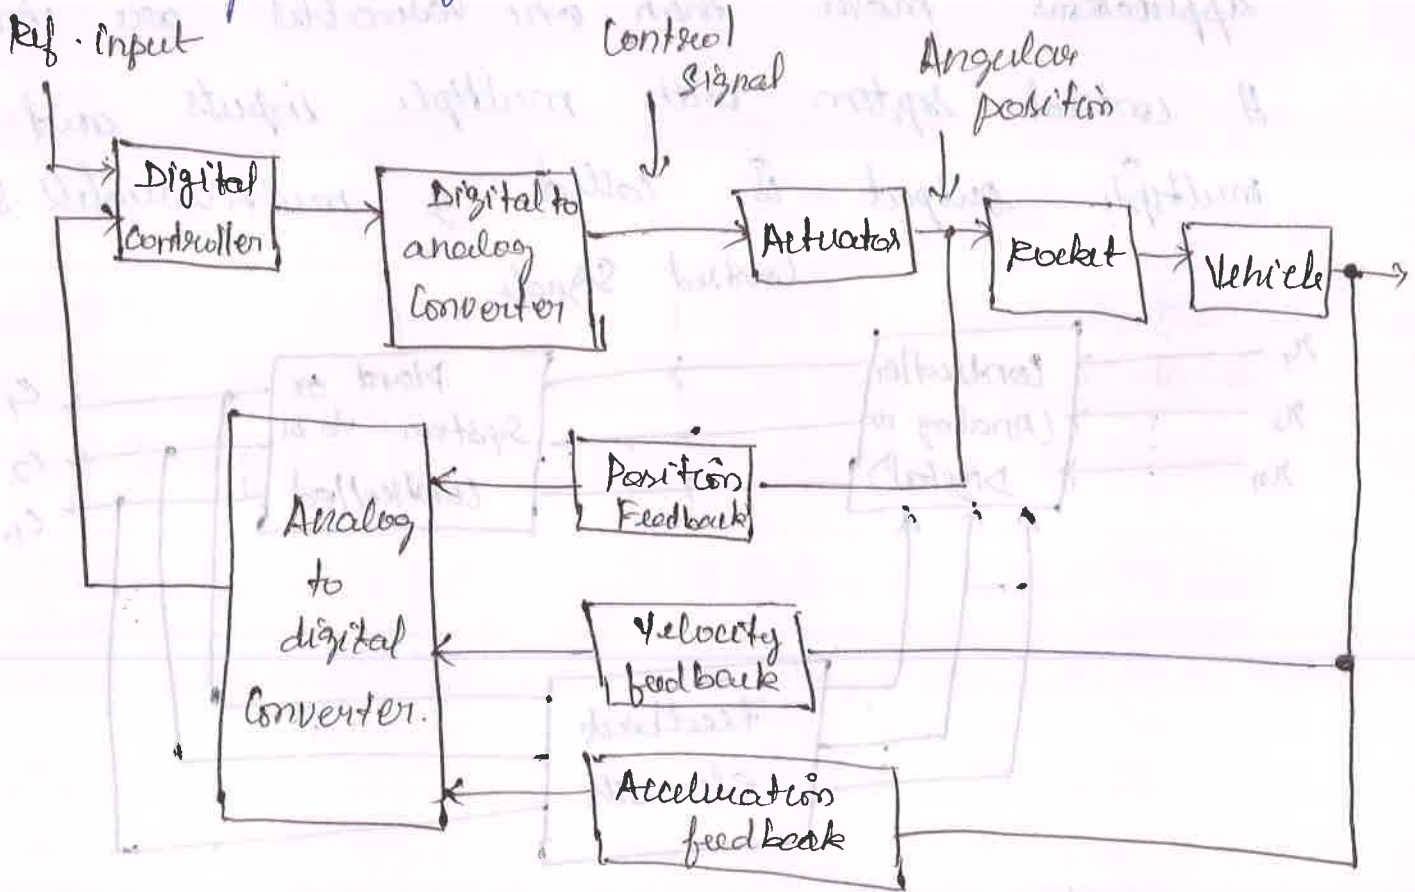 Ref. input
Control
Signal
Angular
position
Digital
Controller
Digital to
analog
Converter
Actuator
Rocket
Vehicle
Analog
to
digital
Converter.
Position
Feedback
Velocity
feedback
Acceleration
feedback